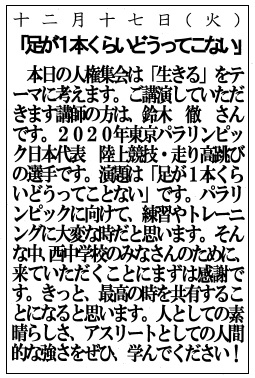 十二月十七日(火)
「足が1本くらいどうってこない」
　本日の人権集会は「生きる」をテ
ーマに考えます。ご講演していただ
きます講師の方は、鈴木　徹　さん
です。2020年東京パラリンピッ
ク日本代表　陸上競技・走り高跳び
の選手です。演題は「足が1本くら
いどうってことない」です。パラリ
ンピックに向けて、練習やトレーニ
ングに大変な時だと思います。そん
な中、西中学校のみなさんのために、
来ていただくことにまずは感謝で
す。きっと、最高の時を共有するこ
とになると思います。人としての素
晴らしさ、アスリートとしての人間
的な強さをぜひ、学んでください!